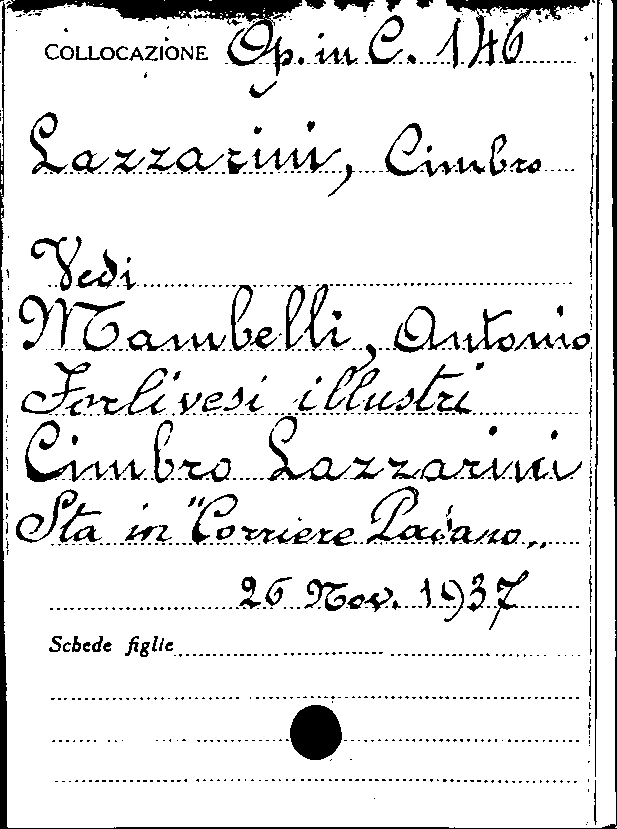 COLLOCAZIONE Op. in C. 146
Lazzarini, Cimbro
Vedi
Mambelli, Antonio
Forlivesi illustri
Cimbro Lazzarini
Sta in "Corriere Padano„
26 Nov. 1937
Schede figlie